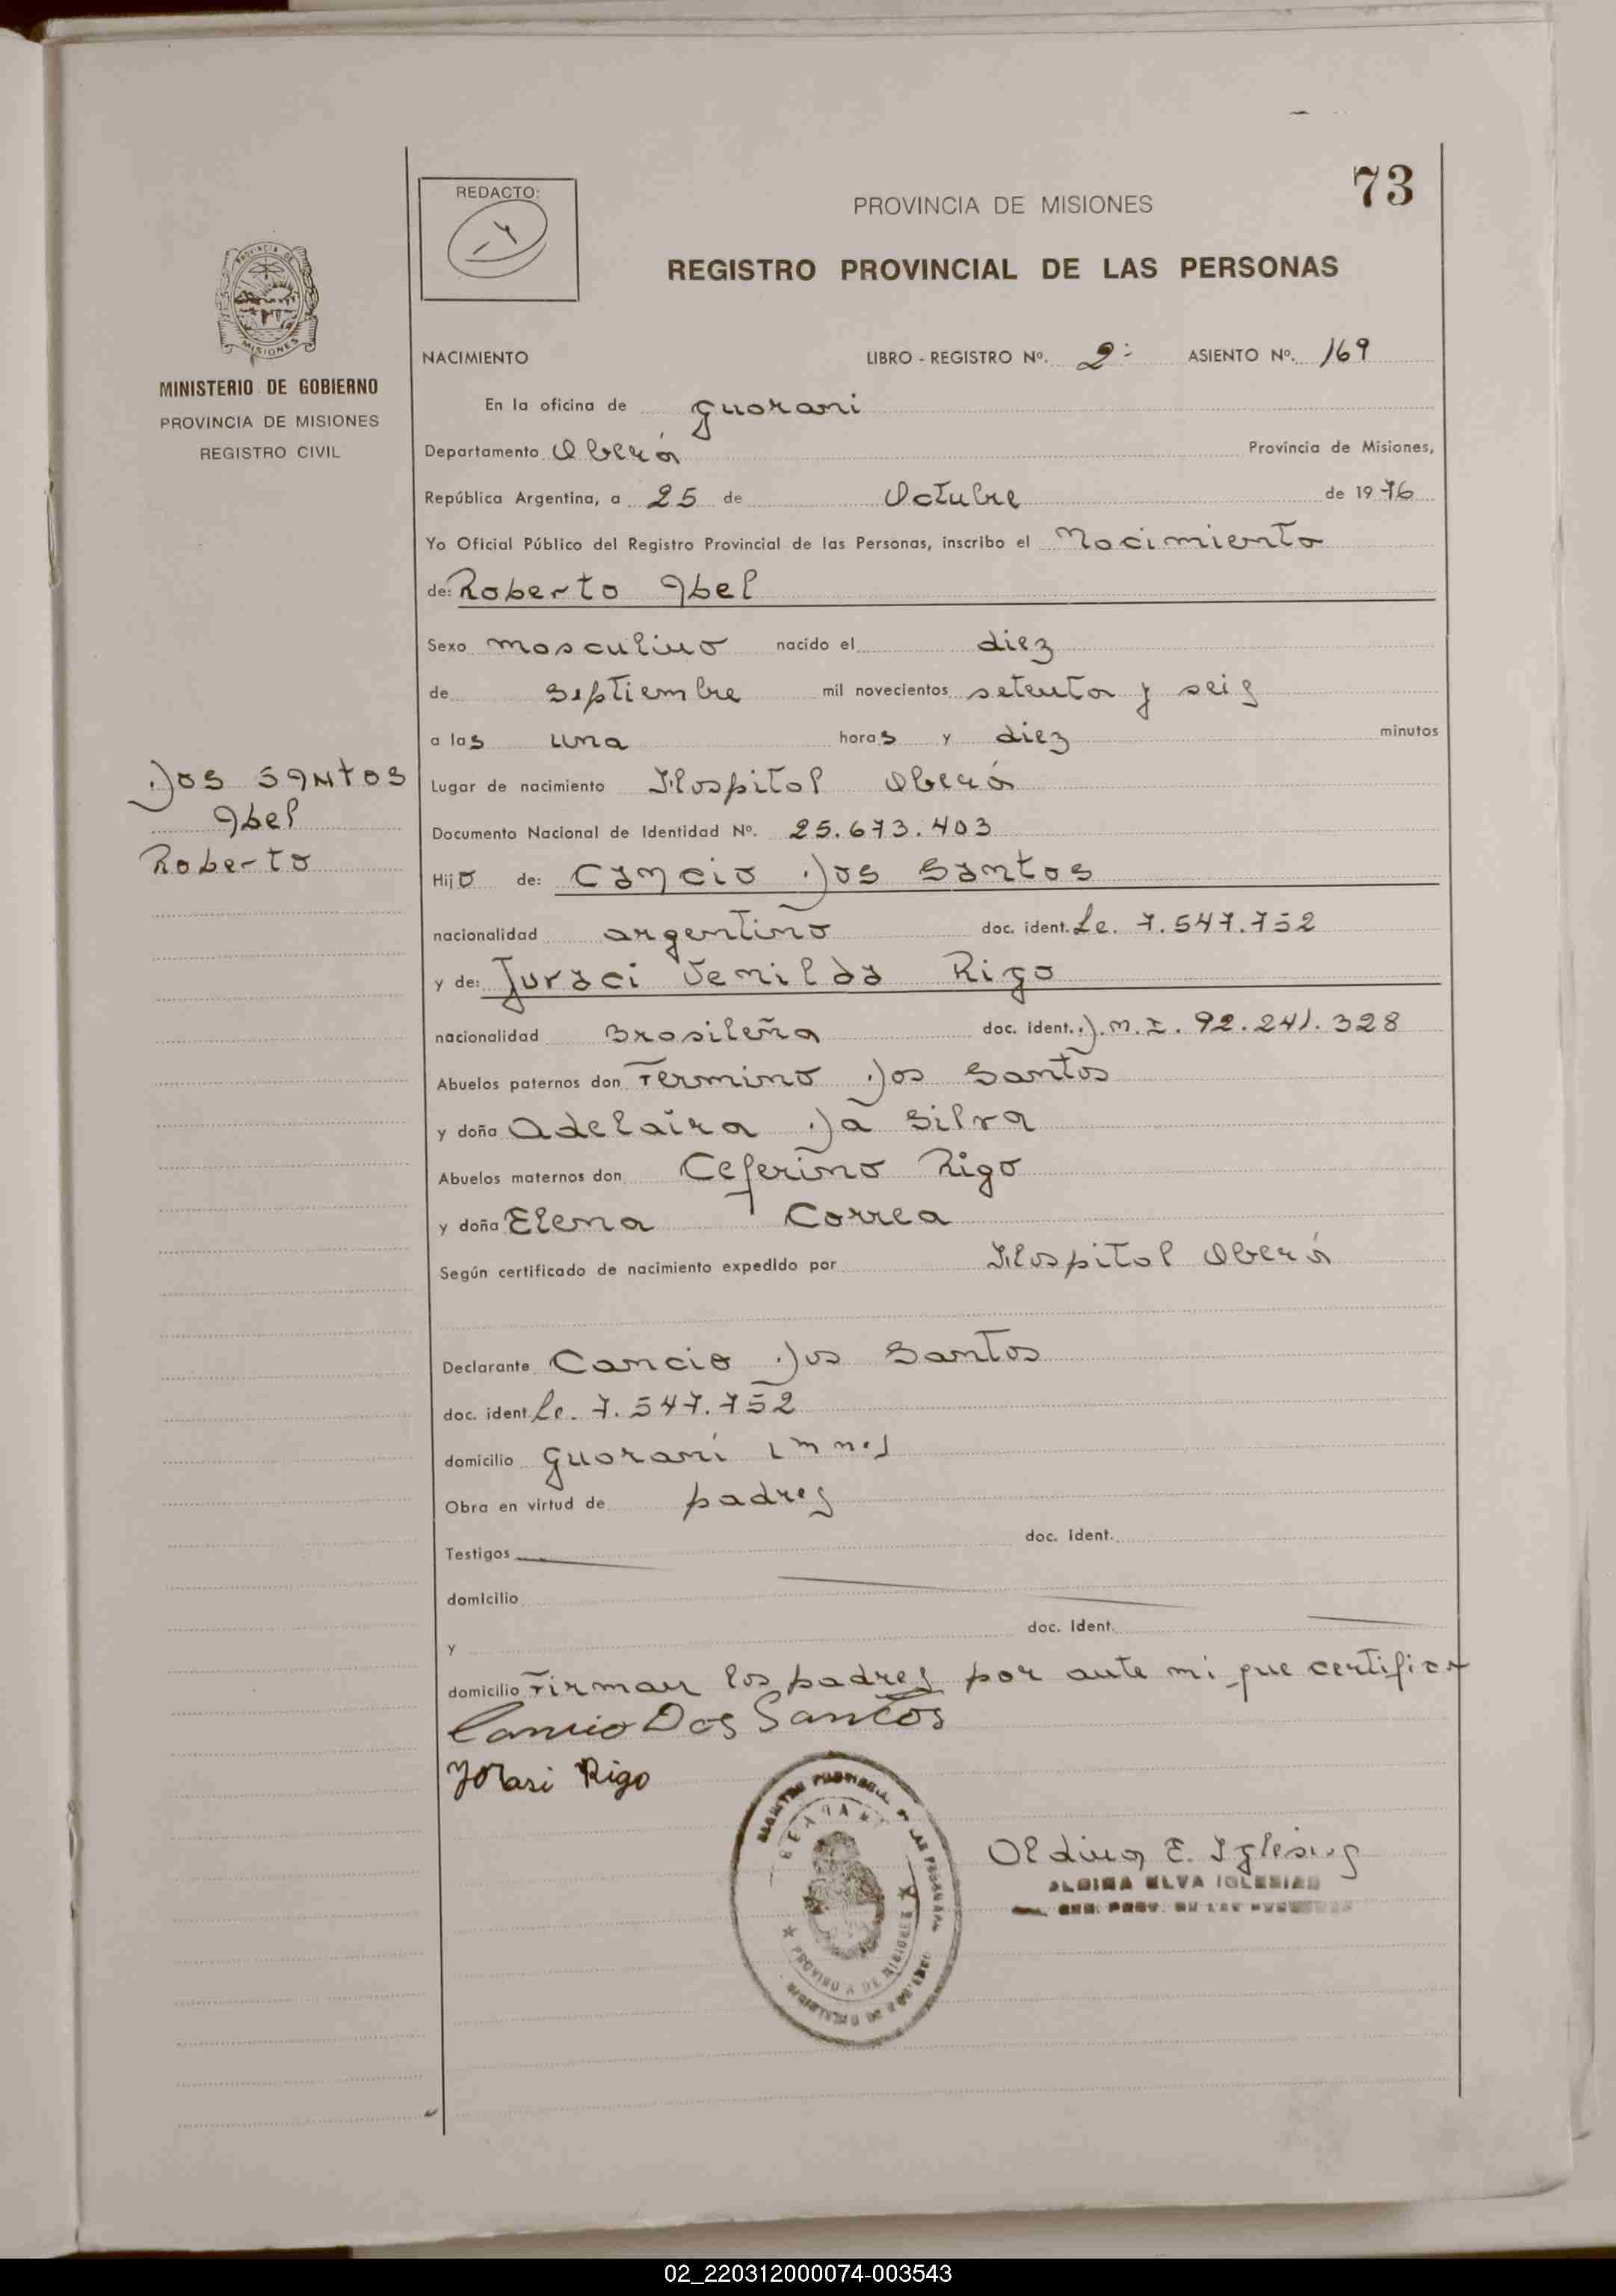 73
REDACTO:
PROVINCIA DE MISIONES
REGISTRO PROVINCIAL DE LAS PERSONAS
PROVINCIA DE
MISIONES
MINISTERIO DE GOBIERNO
PROVINCIA DE MISIONES
REGISTRO CIVIL
NACIMIENTO LIBRO - REGISTRO Nº. 2º ASIENTO Nº. 169
En la oficina de Guarani
Departamento Oberá Provincia de Misiones,
República Argentina, a 25 de Octubre de 1976
Yo Oficial Público del Registro Provincial de las Personas, inscribo el Nacimiento
de: Roberto Abel
Sexo masculino nacido el diez
de Septiembre mil novecientos setenta y seis
a las una horas y diez minutos
Dos Santos
Abel
Roberto
Lugar de nacimiento Hospital Oberá
Documento Nacional de Identidad Nº. 25.673.403
Hijo de: Cancio Dos Santos
nacionalidad argentino doc. ident. Le. 7.547.752
y de: Juraci Renilda Rigo
nacionalidad Brasileña doc. ident. D.N.I. 92.241.328
Abuelos paternos don Fermino Dos Santos
y doña Adelaira Da Silva
Abuelos maternos don Ceferino Rigo
y doña Elena Correa
Según certificado de nacimiento expedido por Hospital Oberá
Declarante Cancio Dos Santos
doc. ident. Le. 7.547.752
domicilio Guaraní (mnes)
Obra en virtud de padres
Testigos doc. ident.
domicilio
y doc. ident.
domicilio Firman los padres por ante mi que certifico
Cancio Dos Santos
Rigo
Albina E. Iglesias
ALBINA ELVA IGLESIAS
PROVINCIA DE MISIONES
02_220312000074-003543